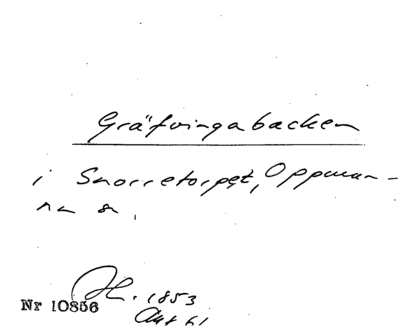 Gräfvingabacken
i Snorretorpet, Oppman-
na sn.
H. 1853
Nr 10856